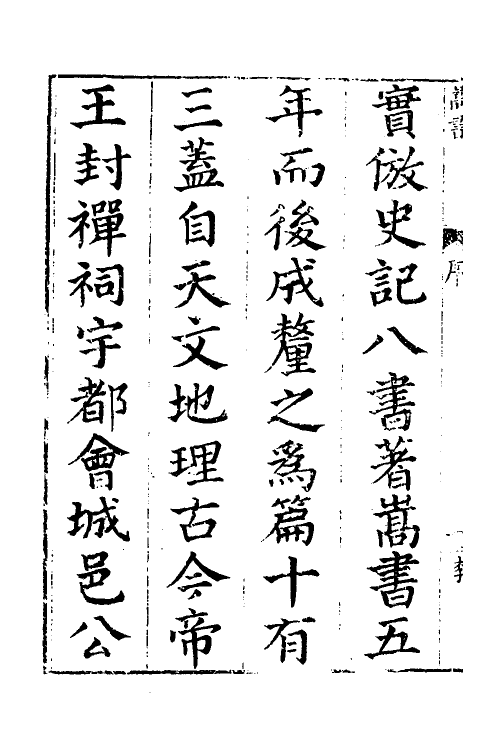 實倣史記八書著嵩書五
年而後成釐之爲篇十有
三蓋自天文地理古今帝
王封禪祠宇都會城邑公
序